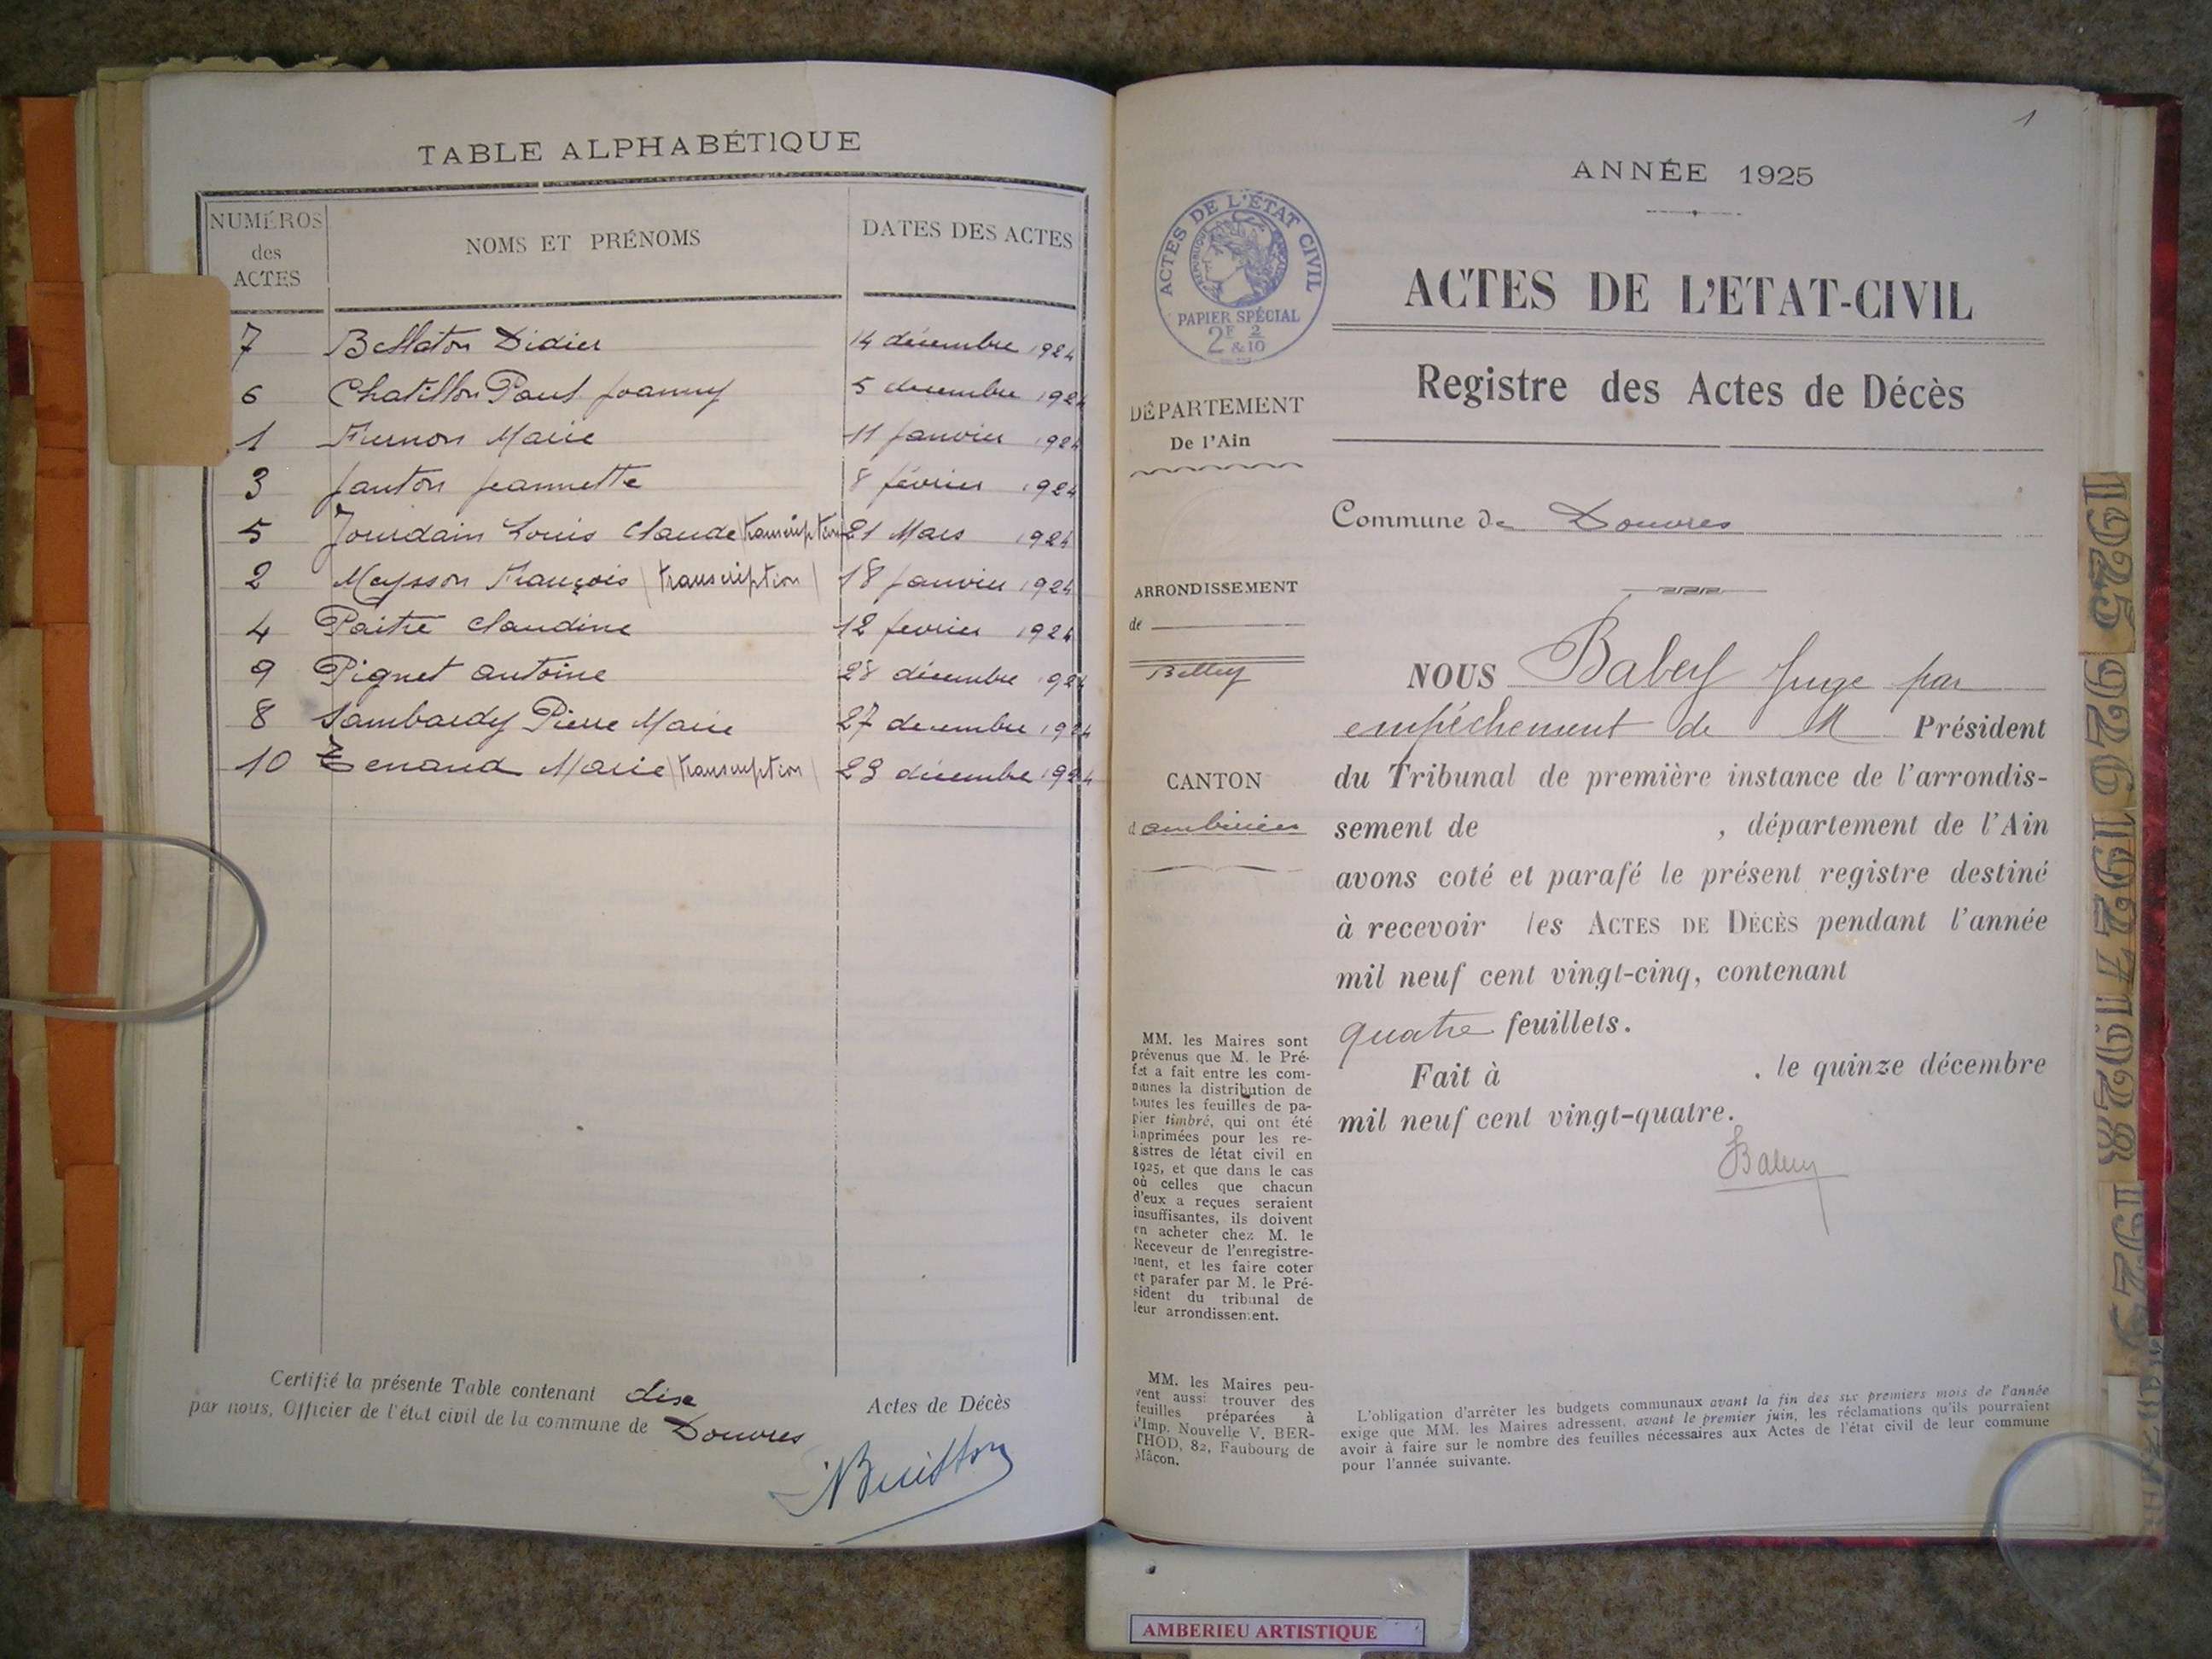 TABLE ALPHABÉTIQUE
NUMÉROS
des
ACTES
NOMS ET PRÉNOMS
DATES DES ACTES
7 Bellaton Didier 14 décembre 1924
6 Chatillon Paul Joanny 5 décembre 1924
1 Furnon Marie 11 Janvier 1924
3 Janton Jeannette 8 février 1924
5 Jourdain Louis Claude (transcription 21 Mars 1924
2 Meysson François (transcription) 18 Janvier 1924
4 Paitre Claudine 12 février 1924
9 Pignet antoine 28 décembre 1924
8 Sambardy Pierre Marie 27 decembre 1924
10 Tenand Marie (transcription) 29 décembre 1924
Certifié la présente Table contenant dix Actes de Décès
par nous, Officier de l'état civil de la commune de Douvres
Buisson
1
ANNÉE 1925
ACTES DE L'ÉTAT CIVIL
RÉPUBLIQUE
PAPIER SPÉCIAL
2F 2
& 10
ACTES DE L'ETAT-CIVIL
Registre des Actes de Décès
DÉPARTEMENT
De l'Ain
Commune de Douvres
ARRONDISSEMENT
de
Belley
CANTON
d'ambérieu
NOUS Babey Juge par
empêchement de M Président
du Tribunal de première instance de l'arrondis-
sement de , département de l'Ain
avons coté et parafé le présent registre destiné
à recevoir les ACTES DE DÉCÈS pendant l'année
mil neuf cent vingt-cinq, contenant
quatre feuillets.
Fait à , le quinze décembre
mil neuf cent vingt-quatre.
Babey
MM. les Maires sont
prévenus que M. le Pré-
fet a fait entre les com-
munes la distribution de
toutes les feuilles de pa-
pier timbré, qui ont été
imprimées pour les re-
gistres de létat civil en
1925, et que dans le cas
où celles que chacun
d'eux a reçues seraient
insuffisantes, ils doivent
en acheter chez M. le
Receveur de l'enregistre-
ment, et les faire coter
et parafer par M. le Pré-
sident du tribunal de
leur arrondissement.
MM. les Maires peu-
vent aussi trouver des
feuilles préparées à
l'Imp. Nouvelle V. BER-
THOD, 82, Faubourg de
Mâcon.
L'obligation d'arrêter les budgets communaux avant la fin des six premiers mois de l'année
exige que MM. les Maires adressent, avant le premier juin, les réclamations qu'ils pourraient
avoir à faire sur le nombre des feuilles nécessaires aux Actes de l'état civil de leur commune
pour l'année suivante.
1925
1926
1927
1928
1929
AMBERIEU ARTISTIQUE